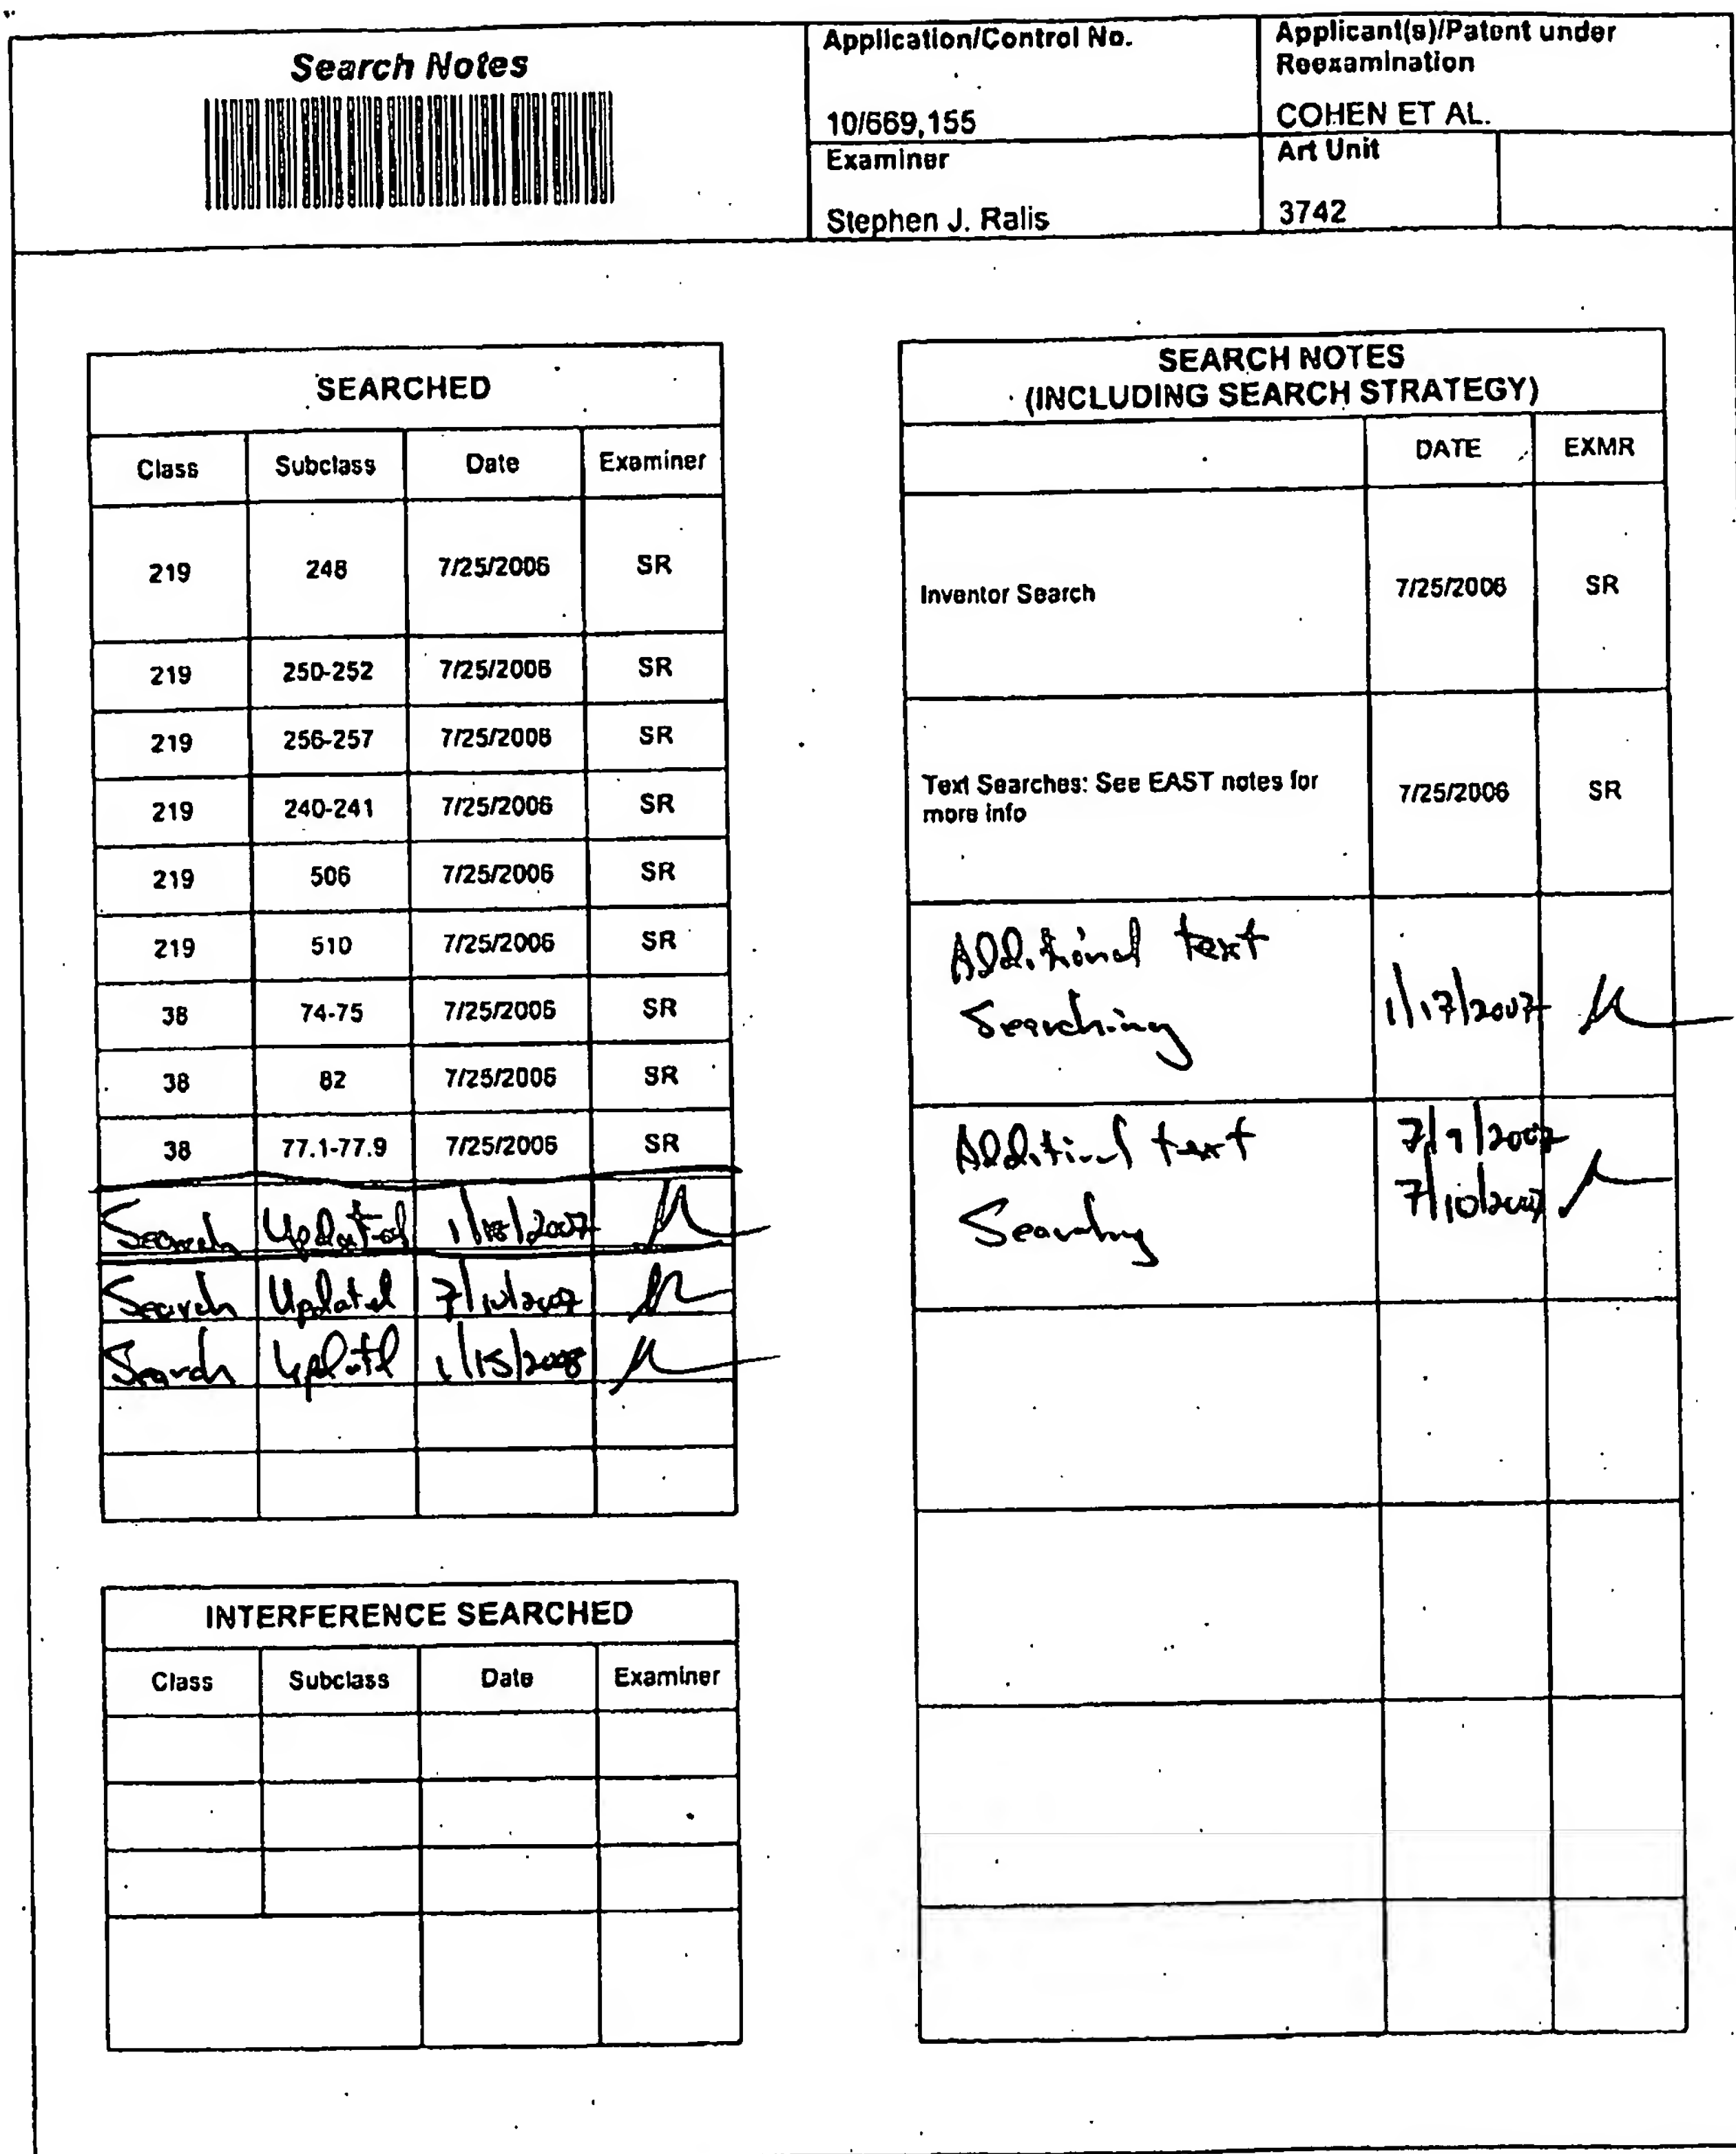 Search Notes
Application/Control No.
10/669,155
Applicant(s)/Patent under
Reexamination
COHEN ET AL.
Examiner
Stephen J. Ralis
Art Unit
3742
SEARCHED
Class Subclass Date Examiner
219 248 7/25/2006 SR
219 250-252 7/25/2006 SR
219 256-257 7/25/2006 SR
219 240-241 7/25/2006 SR
219 506 7/25/2006 SR
219 510 7/25/2006 SR
38 74-75 7/25/2006 SR
38 82 7/25/2006 SR
38 77.1-77.9 7/25/2006 SR
Search Updated 1/18/2007
Search Updated 7/10/2007
Search Updated 1/15/2008
INTERFERENCE SEARCHED
Class Subclass Date Examiner
SEARCH NOTES
(INCLUDING SEARCH STRATEGY)
DATE EXMR
Inventor Search 7/25/2006 SR
Text Searches: See EAST notes for
more info 7/25/2006 SR
Additional text
Searching 1/17/2007
Additional text 7/9/2007
Searching 7/10/2007